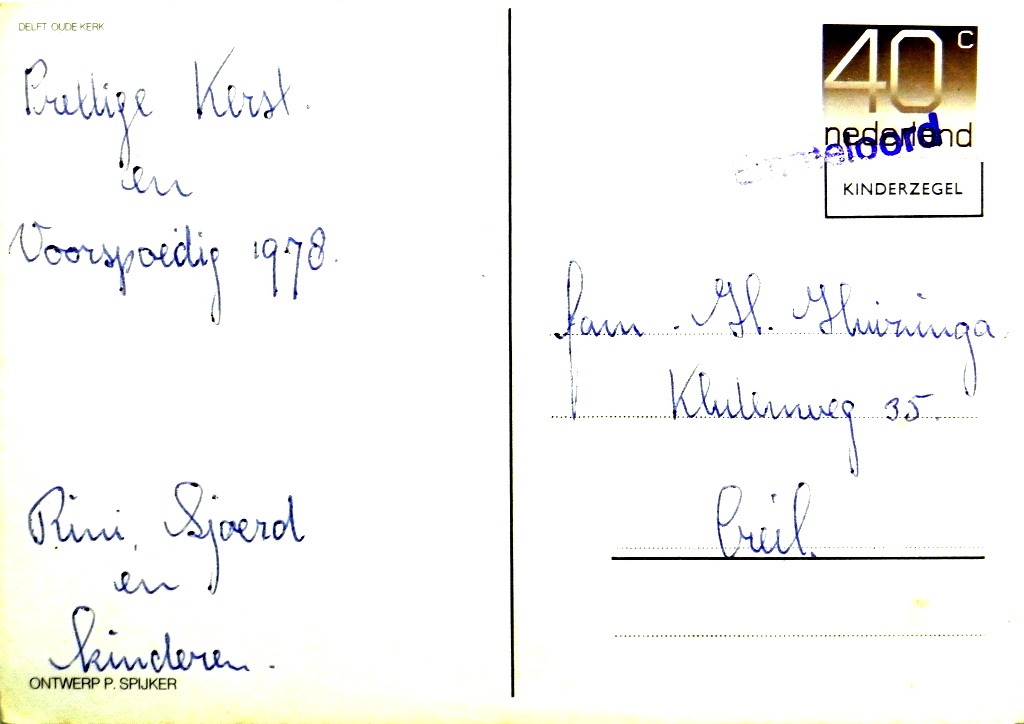 DELFT OUDE KERK
Prettige Kerst.
en
Voorspoedig 1978.
Rini, Sjoerd
en
kinderen.
ONTWERP P. SPIJKER
40 c
nederland
KINDERZEGEL
fam. H. Huizinga.
Klutenweg 35.
Creil.